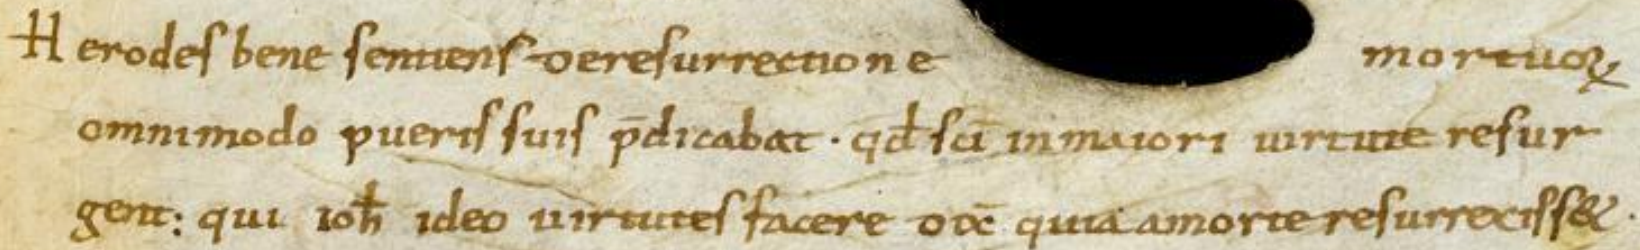 Herodes bene sentiens de resurrectione mortuoꝝ
omnimodo pueris suis p̄dicabat · qđ sc̄i in maiori uirtute resur
gent: qui ioħ ideo uirtutes facere dix̄ quia a morte resurrexiss&.